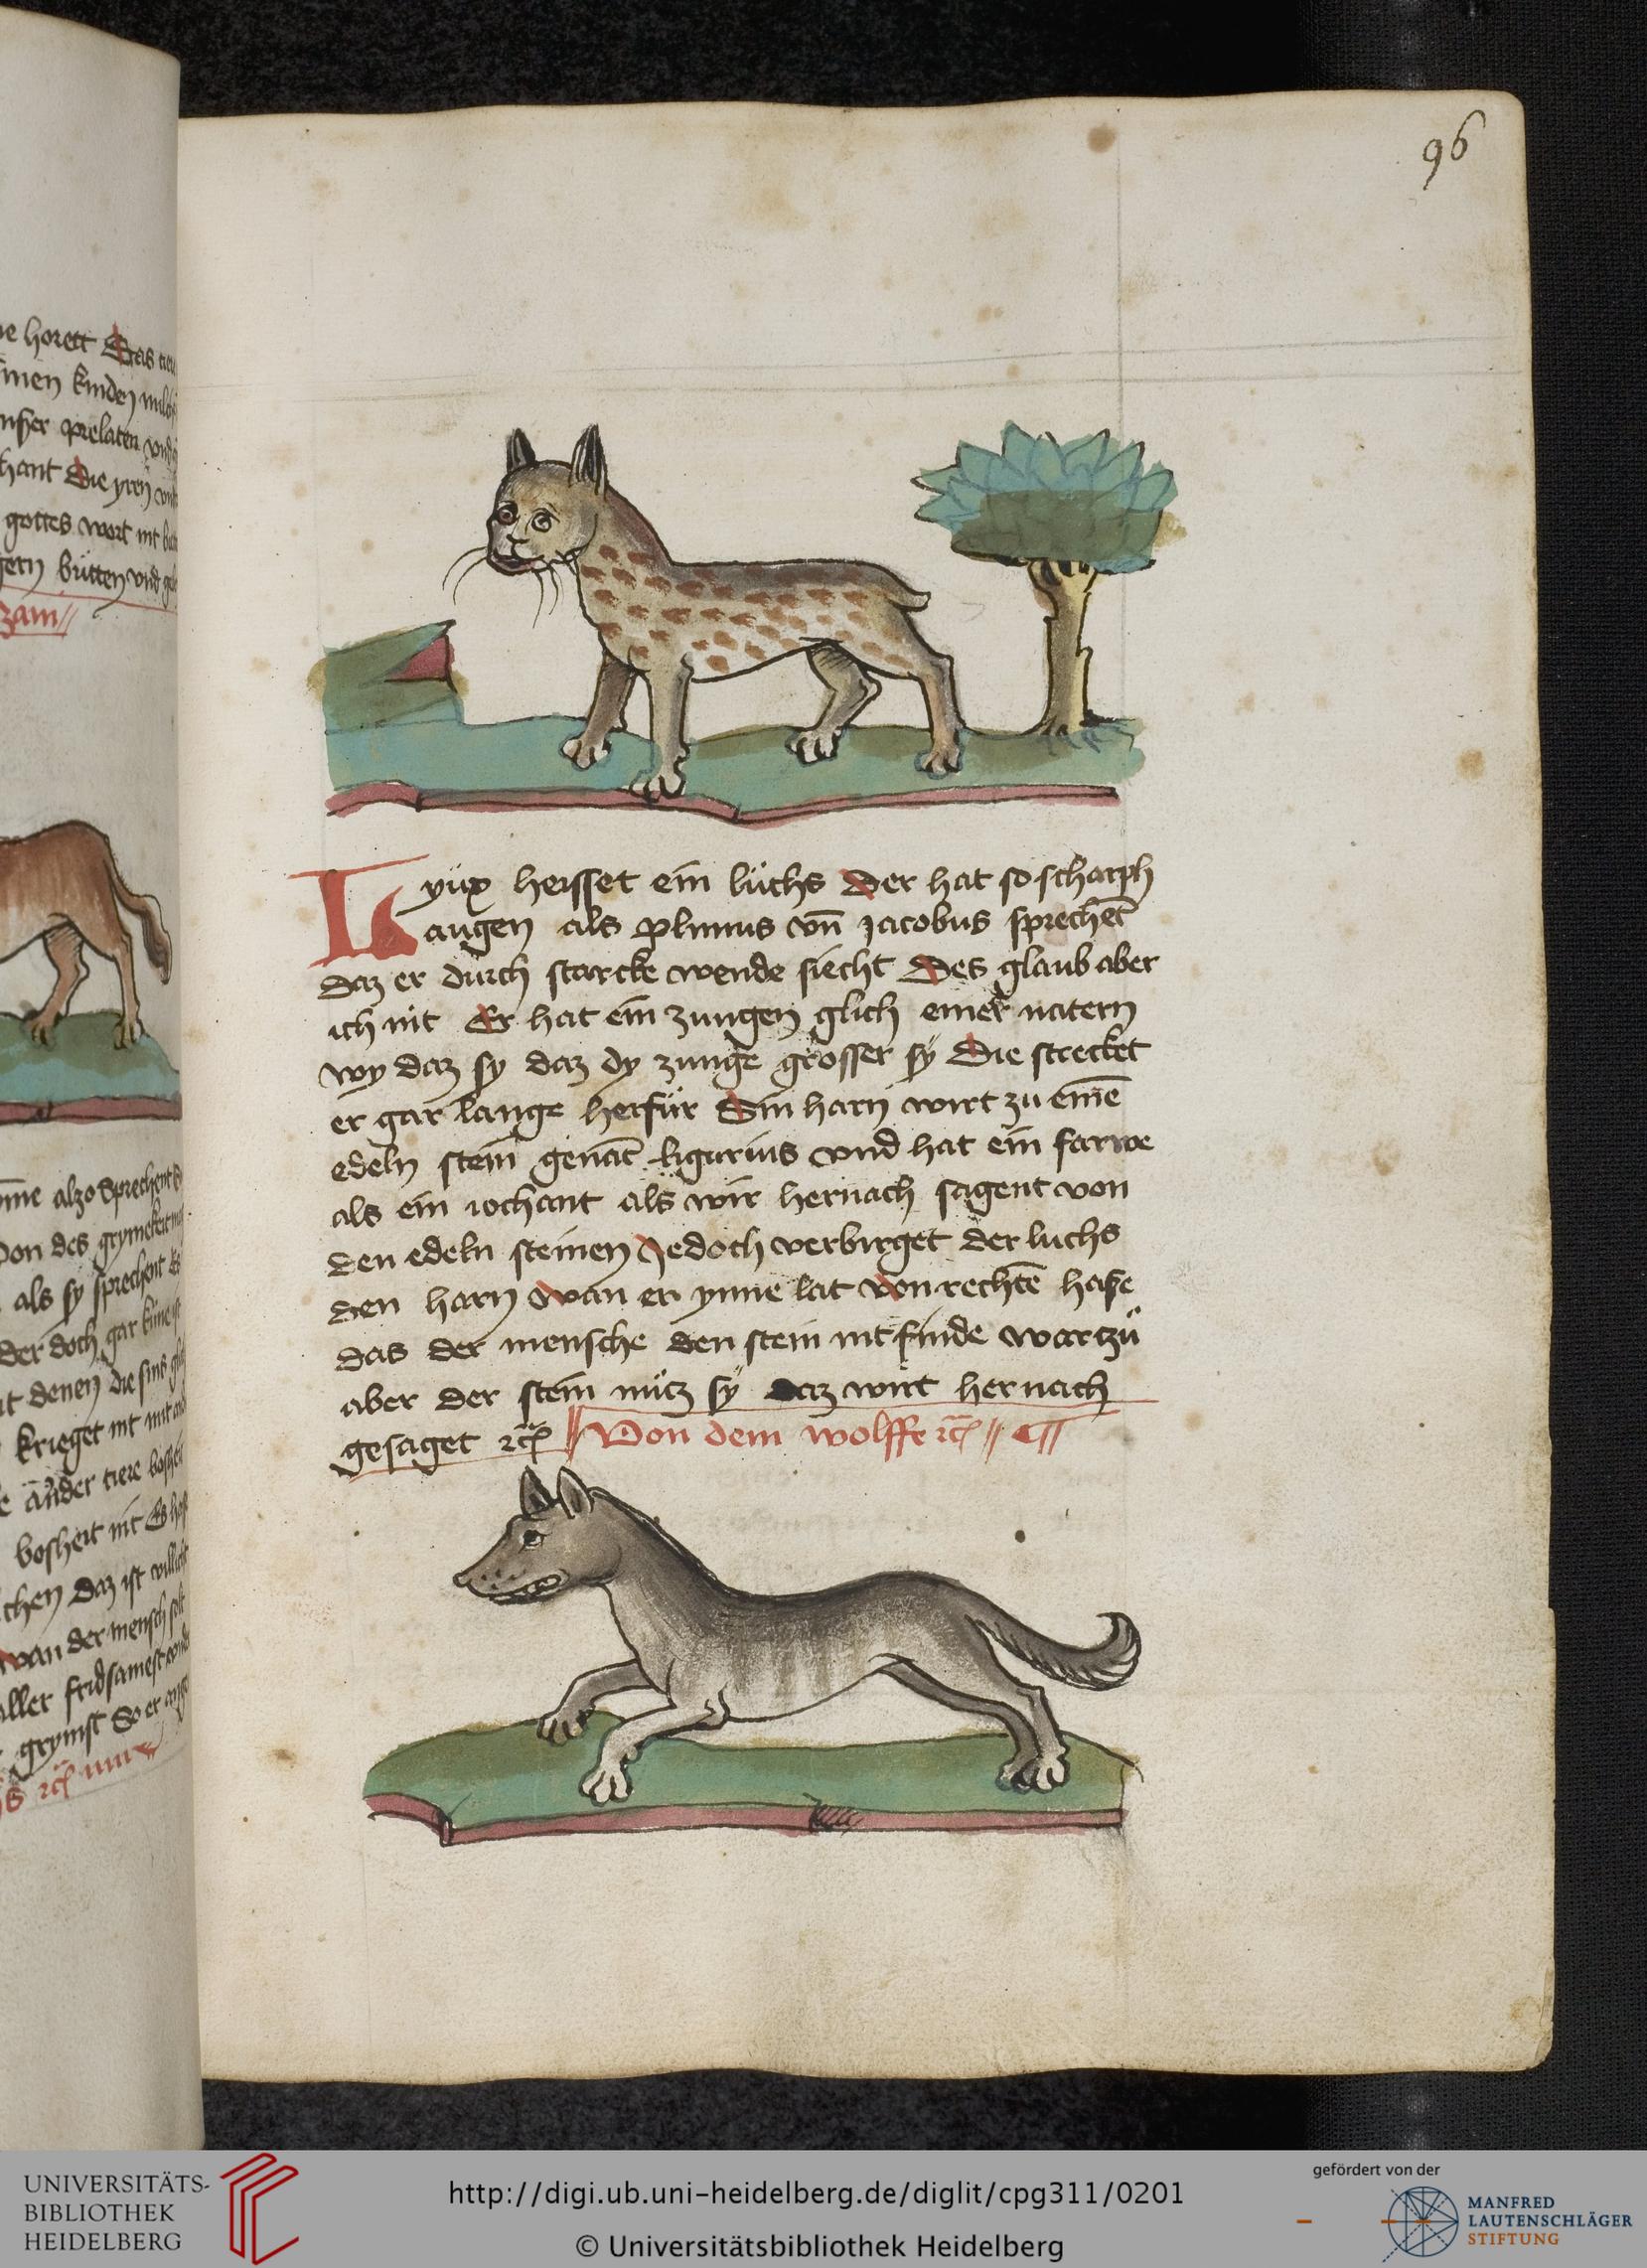 96
Lyüx heisset ein lüchs Der hat so scharph
augen als plinius vn̄ jacobus sprechet̄
daz er durch starcke wende siecht Des glaub aber
ich nit Er hat ein zungen glich einer natern
wy daz sy daz dy zunge grosser sÿ Die strecket
er gar lange herfür Sin harn wirt zu eine̅
edeln stein gena̅t ligurius vnd hat ein farwe
als ein jochant als wir hernach sagent von
den edeln steinen Jedoch verbirget der luchs
den harn wan er ynne lat von rechte̅ hasse
das der mensche den stein nit finde warzů
aber der stein nütz sÿ daz wirt hernach
gesaget ⁊c̄ Von dem wolffe ⁊c̄
horett Das
kinden
prelaten vnd
Die
gottes wort nit
bütten vnd
zam
also Sprechent
von des
als sy sprechent
der doch gar küne
denen die sint
krieget nit mit
ander tiere
bosheit nit Es
daz ist
wan der mensch
aller
grymst So er
UNIVERSITÄTS-
BIBLIOTHEK
HEIDELBERG
http://digi.ub.uni-heidelberg.de/diglit/cpg311/0201
© Universitätsbibliothek Heidelberg
gefördert von der
MANFRED
LAUTENSCHLÄGER
STIFTUNG